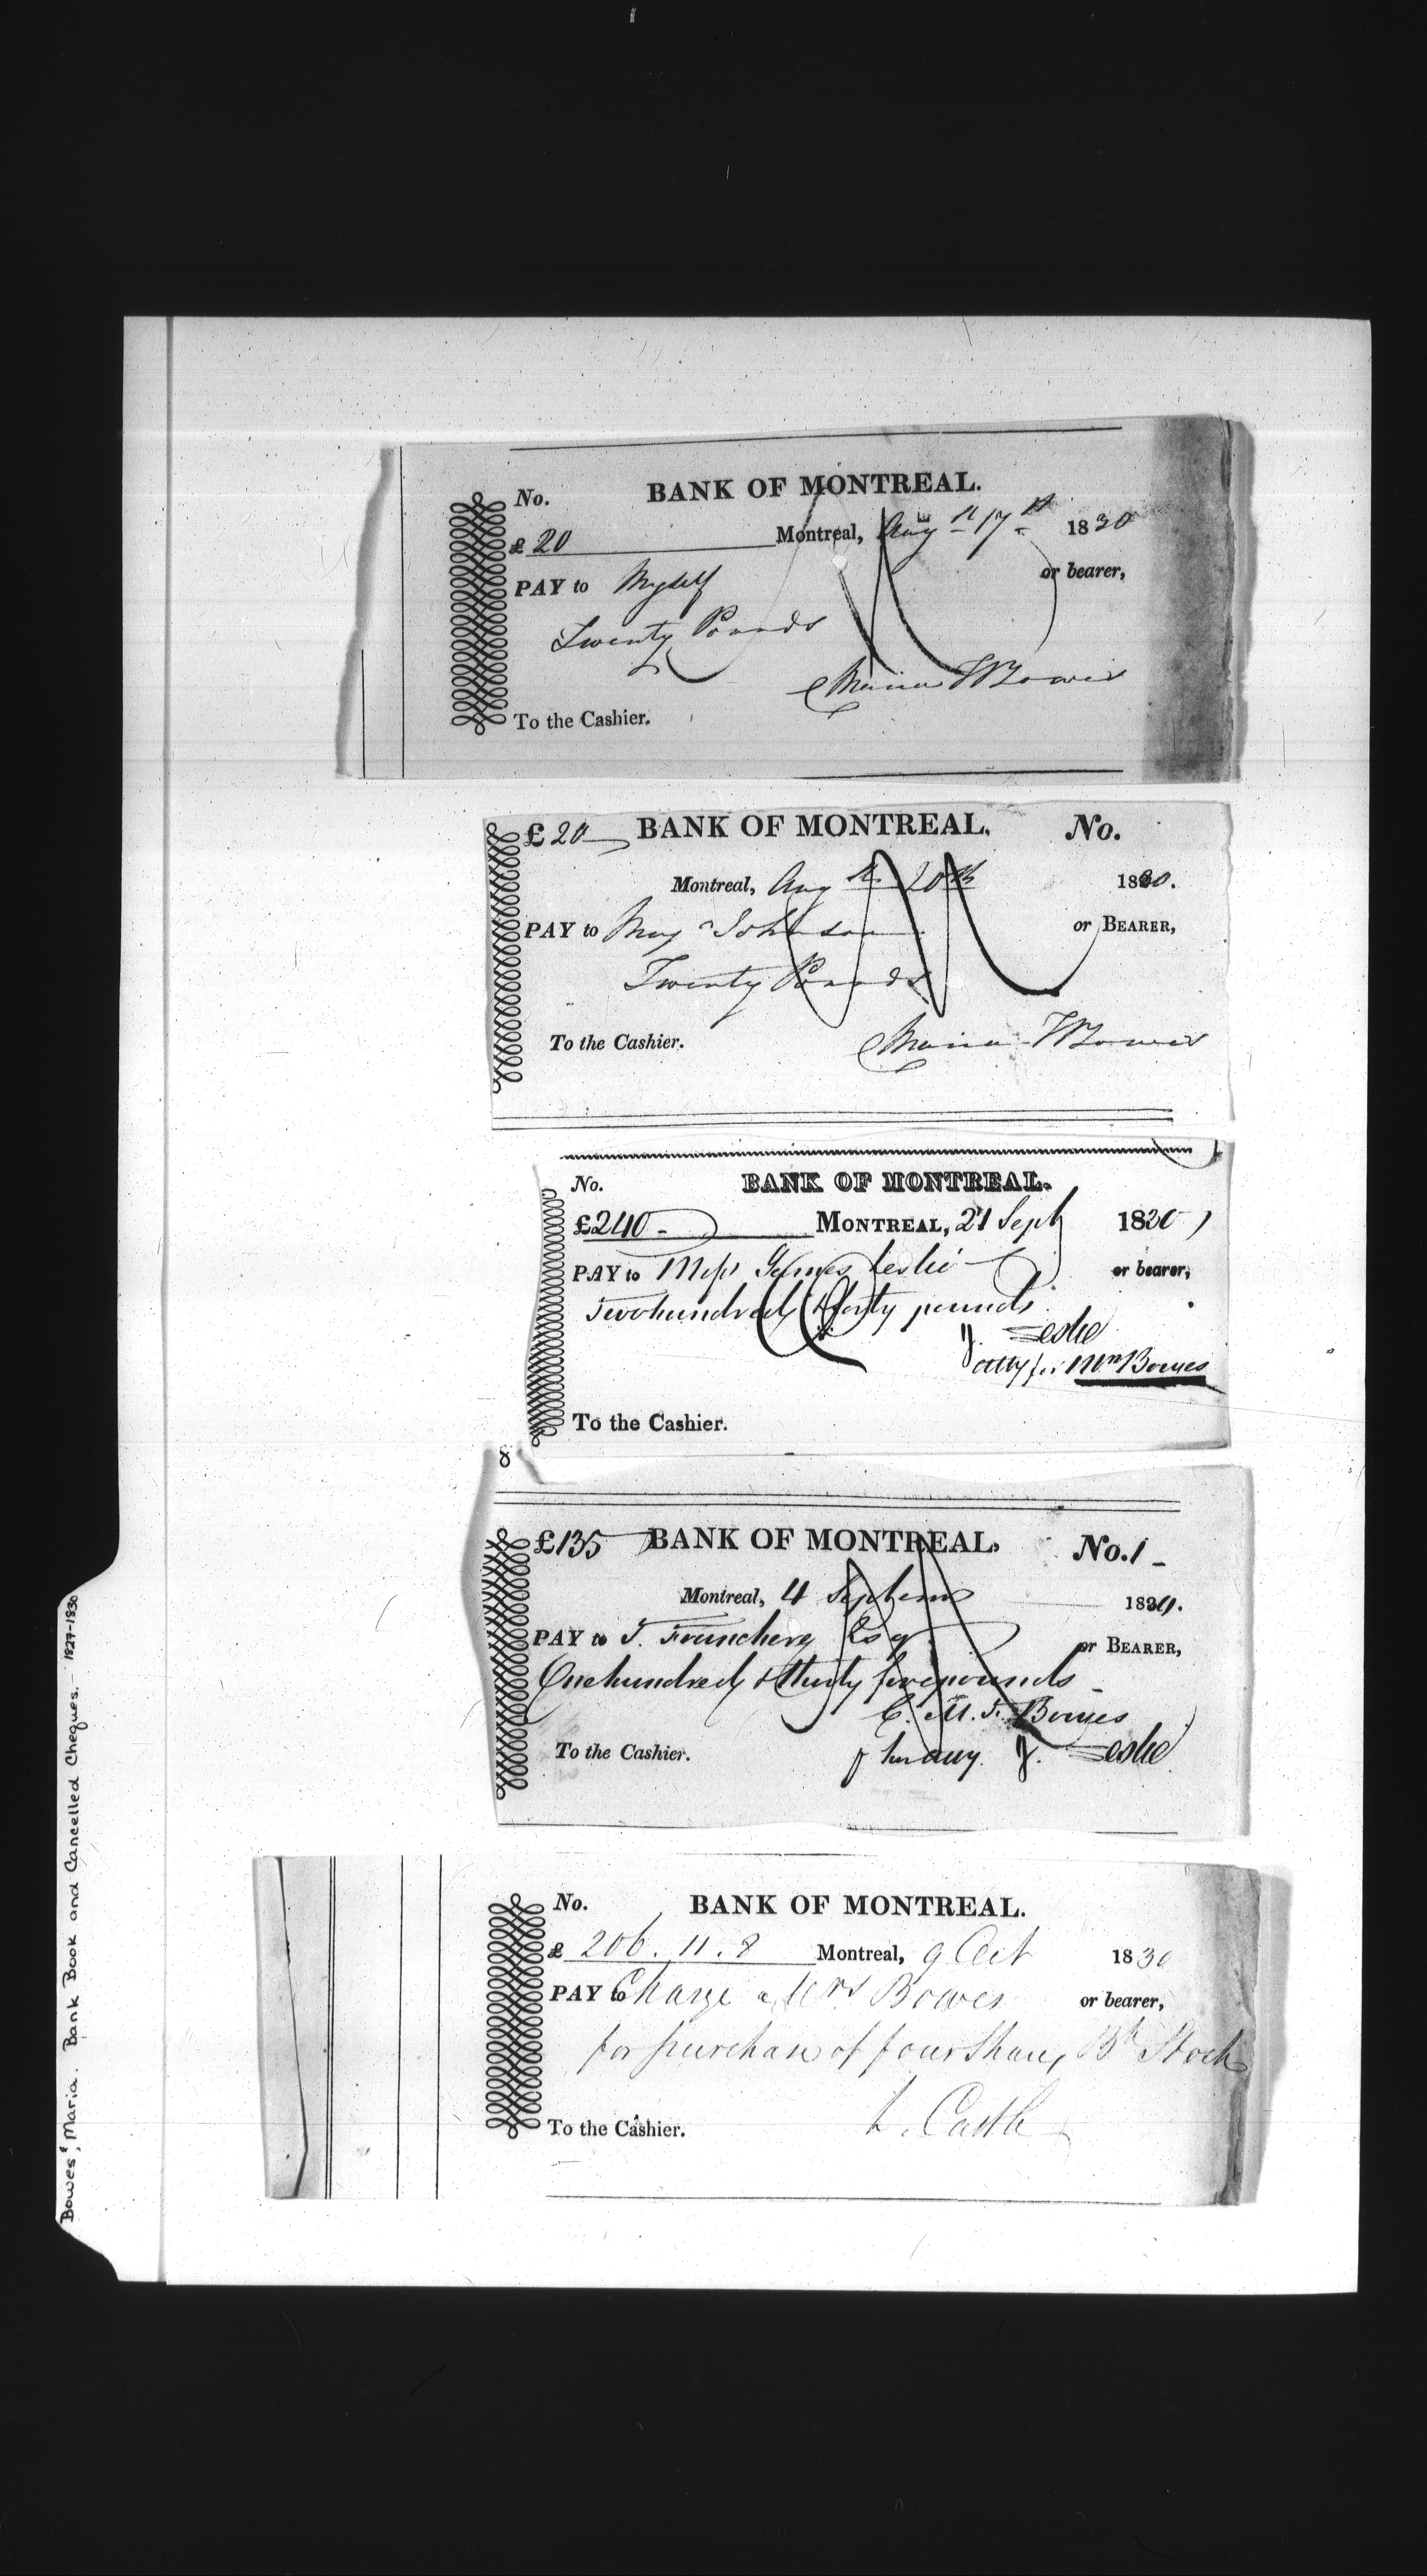 No. BANK OF MONTREAL.
£ 20 Montreal, Aug st 17th 1830
PAY to Myself or bearer,
Twenty Pounds
Maria F Bowes
To the Cashier.
£ 20 BANK OF MONTREAL. No.
Montreal, Aug st 20th 1830.
PAY to Johnson or BEARER,
Twenty Pounds
To the Cashier. Maria F Bowes
No. BANK OF MONTREAL.
£240 - MONTREAL, 21 Sept 1830
PAY to Messrs James Leslie or bearer,
Two hundred & forty pounds
J. Leslie
atty for Mrs Bowes
To the Cashier.
£135 BANK OF MONTREAL. No. 1 -
Montreal, 4 Septem
PAY to Esq or BEARER,
One hundred & thirty five pounds -
C. M. F. Bowes
To the Cashier. J. Leslie
No. BANK OF MONTREAL.
£ 206. 11. 8 Montreal, 9 Oct 1830
PAY to Charge Mrs Bowes or bearer,
for purchase of four Shares Bk Stock
To the Cashier.
Bowes, Maria. Bank Book and Cancelled Cheques. - 1827-1830